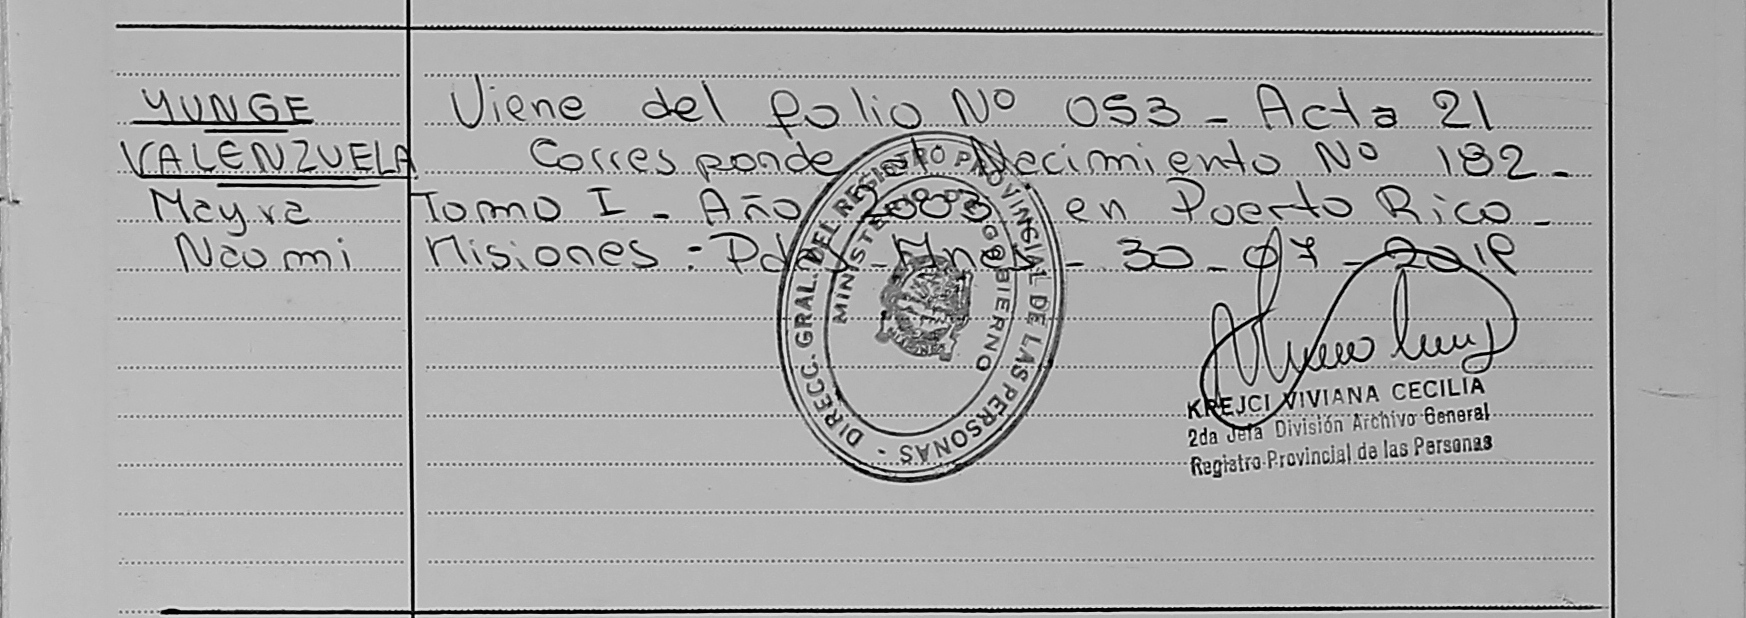 YUNGE
VALENZUELA
Mayra
Naomi
Viene del folio Nº 053 - Acta 21
Corresponde al Nacimiento Nº 182 -
Tomo I - Año 2003 en Puerto Rico -
Misiones : Pdas - Mnes - 30 - 07 - 2019
DIRECC. GRAL. DEL REGISTRO PROVINCIAL DE LAS PERSONAS -
MINISTERIO DE GOBIERNO
MISIONES
KREJCI VIVIANA CECILIA
2da Jefa División Archivo General
Registro Provincial de las Personas